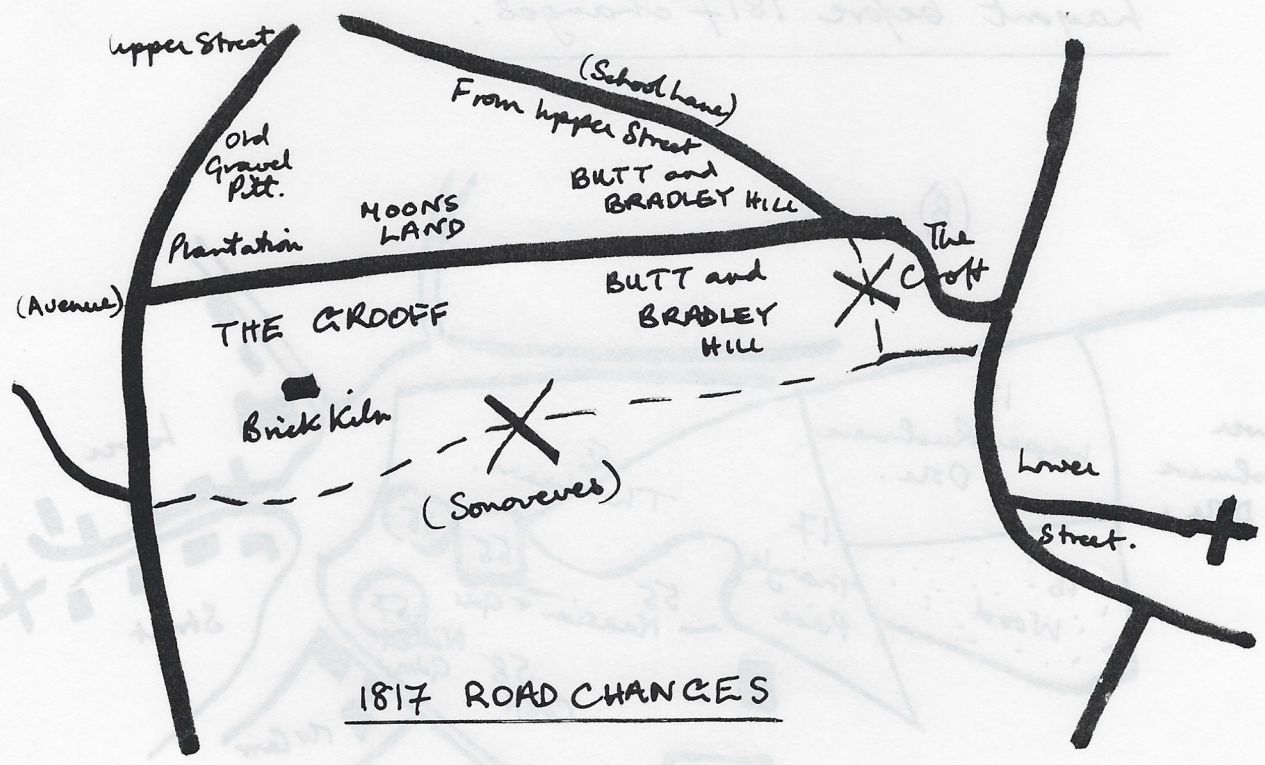 Upper Street
(School Lane)
From Upper Street
Old
Gravel
Pitt.
BUTT and
BRADLEY HILL
MOONS
LAND
Plantation
The
Croft
(Avenue)
THE GROOFF
BUTT and
BRADLEY
HILL
Brick Kiln
(Sonoveves)
Lower
Street.
1817 ROAD CHANGES